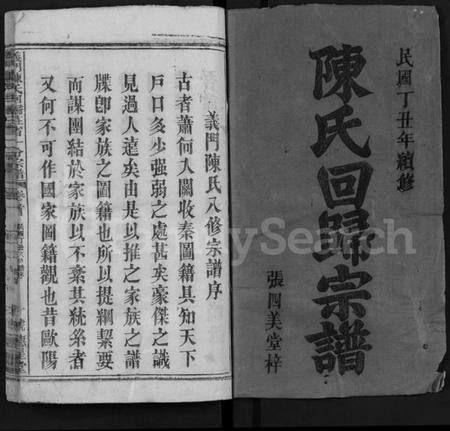 民國丁丑年續修
陳氏回歸宗譜
張四美堂梓
義門陳氏八修宗譜序
古者蕭何入關收秦圖籍具知天下
戶口多少强弱之處甚矣豪傑之識
見過人遠矣由是以推之家族之譜
牒卽家族之圖籍也所以提綱絜要
而謀團結於家族以不紊其統系者
又何不可作國家圖籍觀也昔歐陽
FamilySearch